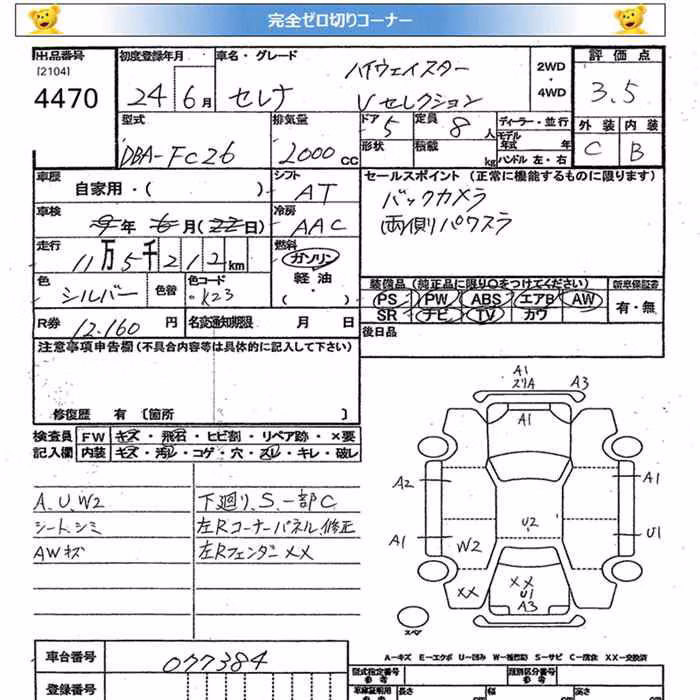 完全ゼロ切りコーナー
出品番号
[2104]
4470
初度登録年月
24 6月
車名・グレード
セレナ
ハイウェイスター
Vセレクション
2WD
・
4WD
評価点
3.5
外装 内装
C B
型式
DBA-FC26
排気量
2000cc
ドア
5
定員
8人
形状
積載
kg
ディーラー・並行
モデル
年式 年
ハンドル 左・右
車歴
自家用・( )
シフト
AT
セールスポイント(正常に機能するものに限ります)
バックカメラ
両側パワスラ
車検
年 6月(22日)
冷房
AAC
走行
11万5千212km
燃料
ガソリン
軽油
・( )
色
シルバー
色替
色コード
K23
装備品(純正品に限り○をつけてください)
新車保証書
PS PW ABS エアB AW
SR ナビ TV カワ
有・無
R券
12.160円
名変通知期限 月 日
後日品
注意事項申告欄(不具合内容等は具体的に記入して下さい)
修復歴 有〔箇所 〕
検査員
記入欄
FW キズ・飛石・ヒビ割・リペア跡・×要
内装 キズ・汚レ・コゲ・穴・スレ・キレ・破レ
A.U.W2
シートシミ
AWキズ
下廻り.S.一部C
左Rコーナーパネル修正
左RフェンダーXX
A1
スリA
A3
A1
A2
A1
A1
U2
U1
W2
XX
XX
U1
A3
スペア
A−キズ E−エクボ U−凹み W−補修跡 S−サビ C−腐食 XX−交換済
車台番号
077384
登録番号
型式指定番号
参考
類別区分番号
参考
車庫証明用
長さ
幅
高さ